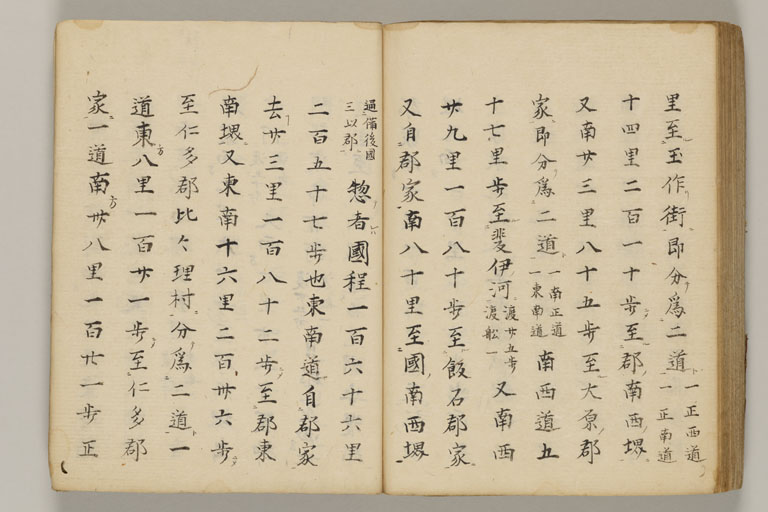 里至玉作街即分爲二道一正西道
一正南道
十四里二百一十歩至郡南西堺
又南廿三里八十五歩至大原郡
家即分爲二道一南正道
一東南道南西道五
十七里歩至斐伊河渡廿五歩
渡船一又南西
廿九里一百八十歩至飯石郡家
又自郡家南八十里至國南西堺
通備後國
三以郡惣者國程一百六十六里
二百五十七歩也東南道自郡家
去廿三里一百八十二歩至郡東
南堺又東南十六里二百卅六歩
至仁多郡比々理村分爲二道一
道東八里一百廿一歩至仁多郡
家一道南卅八里一百廿一歩正